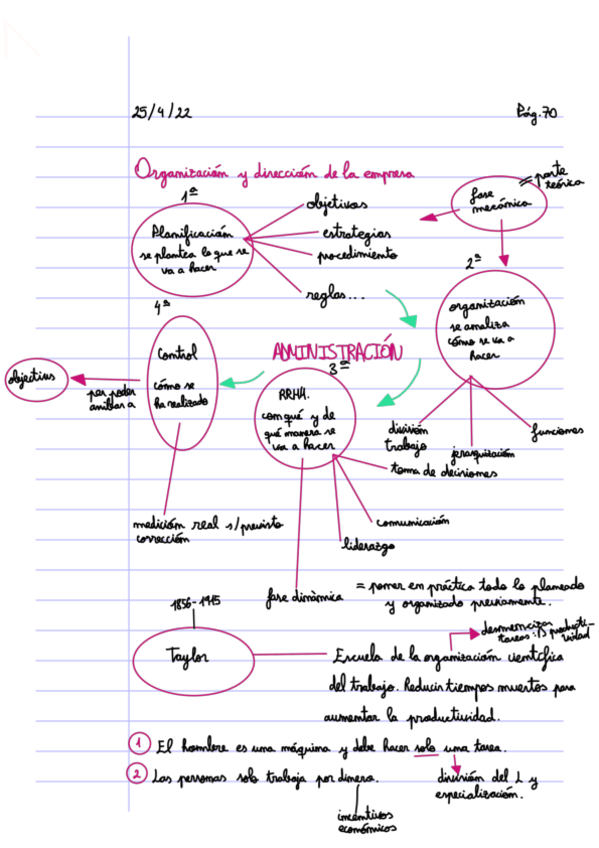 25/4/22
Pág. 70
Organización y dirección de la empresa
1ª
Planificación
se plantea lo que se
va a hacer
objetivos
estrategias
procedimiento
reglas...
fase
mecánica
= parte
teórica
2ª
organización
se analiza
cómo se va a
hacer
división
trabajo
jerarquización
funciones
ADMINISTRACIÓN
3ª
RRHH.
con qué y de
qué manera se
va a hacer
toma de decisiones
comunicación
liderazgo
fase dinámica
= poner en práctica todo lo planeado
y organizado previamente.
4ª
Control
cómo se
ha realizado
per poder
arribar a
objectius
medición real s/previsto
corrección
1856-1915
Taylor
Escuela de la organización científica
del trabajo. Reducir tiempos muertos para
aumentar la productividad.
tareas: producti-
vidad
1 El hombre es una máquina y debe hacer solo una tarea.
2 Las personas solo trabaja por dinero.
división del L y
especialización.
incentivos
económicos